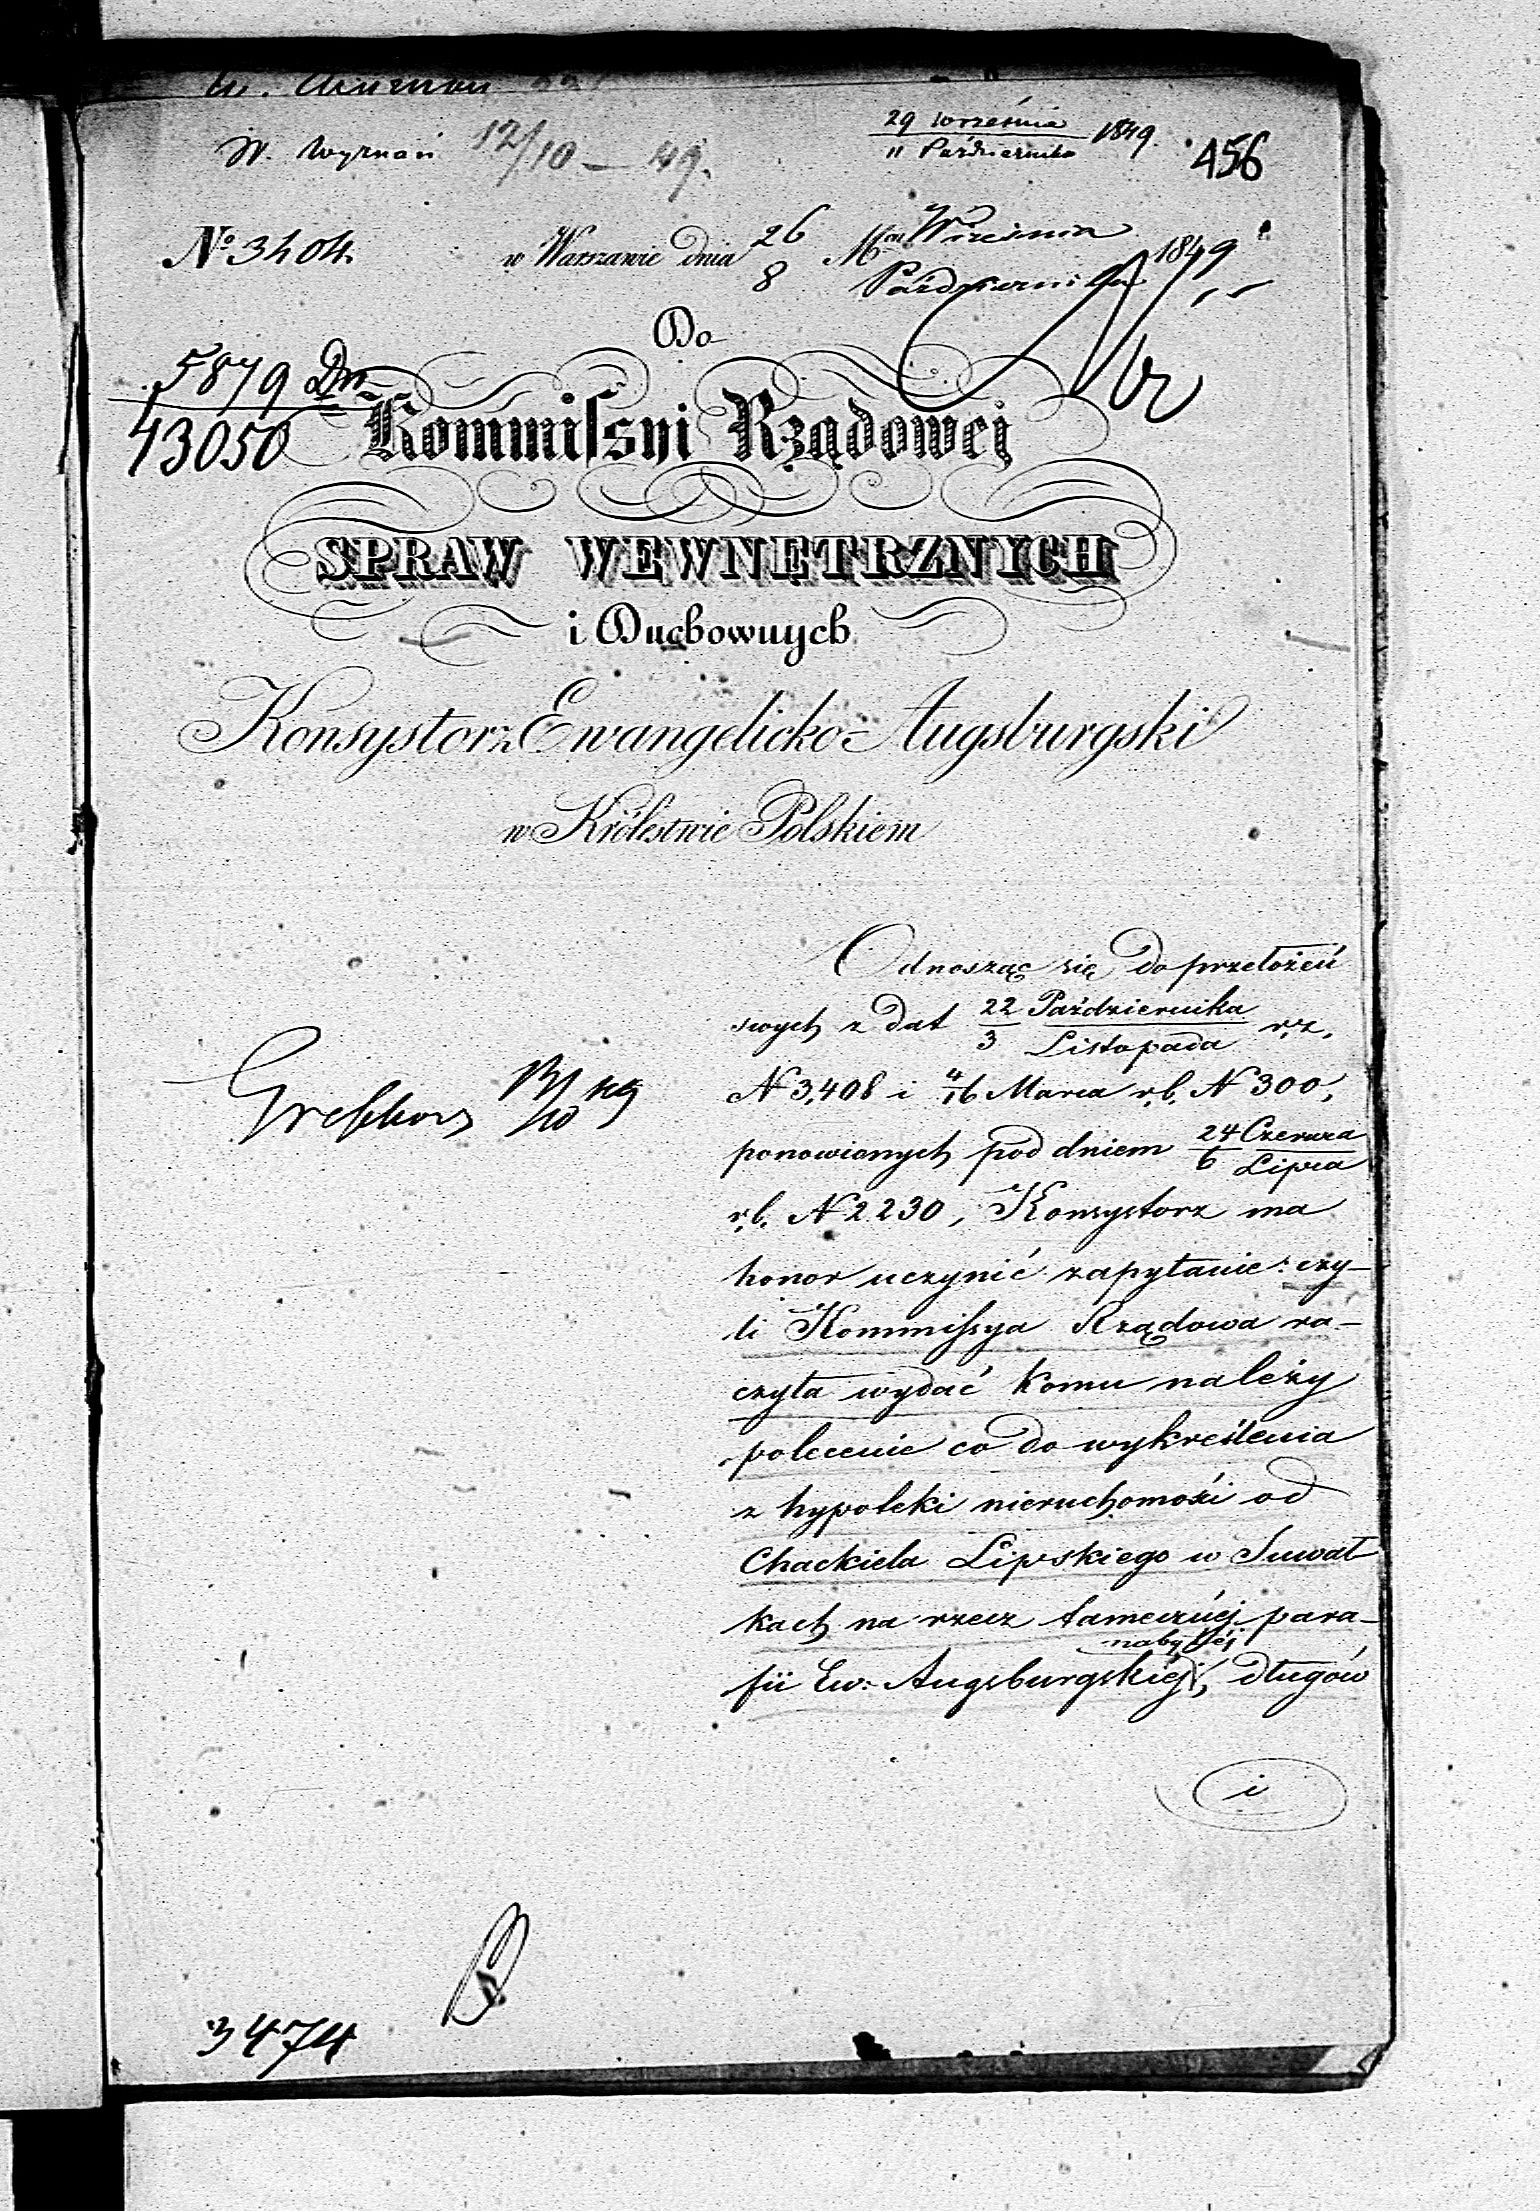 W. Wyznań 12/10 – 49.
29 września
11 Października 1849.
456
No 3404.
w Warszawie dnia 26 Mca Września
8 Października 1849
Do
5879
13050
Kommissyi Rządowej
SPRAW WEWNĘTRZNYCH
i Duchownych
Konsystorz Ewangelicko-Augsburgski
w Królestwie Polskiem
Odnosząc się do przełożeń
swych z dat 22 Października
3 Listopada r.z.
N 3,408 i 4/16 Marca r.b. N 300,
ponowionych pod dniem 24 Czerwca
6 Lipca
r.b. N 2230, Konsystorz ma
honor uczynić zapytanie: czy-
li Kommissya Rządowa ra-
czyła wydać komu należy
polecenie co do wykreślenia
z hypoteki nieruchomości od
Chackiela Lipskiego w Suwał-
kach na rzecz tamecznej para-
fii Ew: Augsburgskiej nabytéj, długów
i
3474